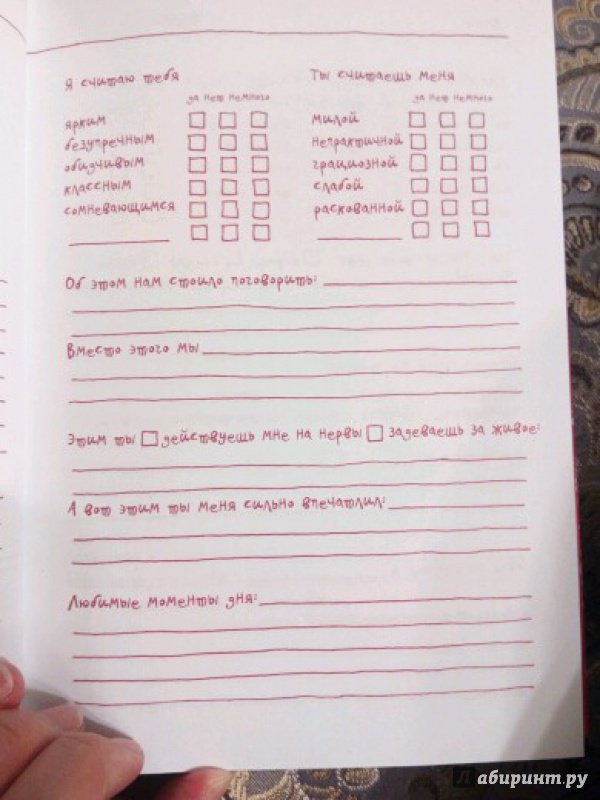 Я считаю тебя
да нет немного
ярким
безупречным
обидчивым
классным
сомневающимся
Ты считаешь меня
да нет немного
милой
непрактичной
грациозной
слабой
раскованной
Об этом нам стоило поговорить:
Вместо этого мы
Этим ты действуешь мне на нервы задеваешь за живое:
А вот этим ты меня сильно впечатлил:
Любимые моменты дня:
Лабиринт.ру